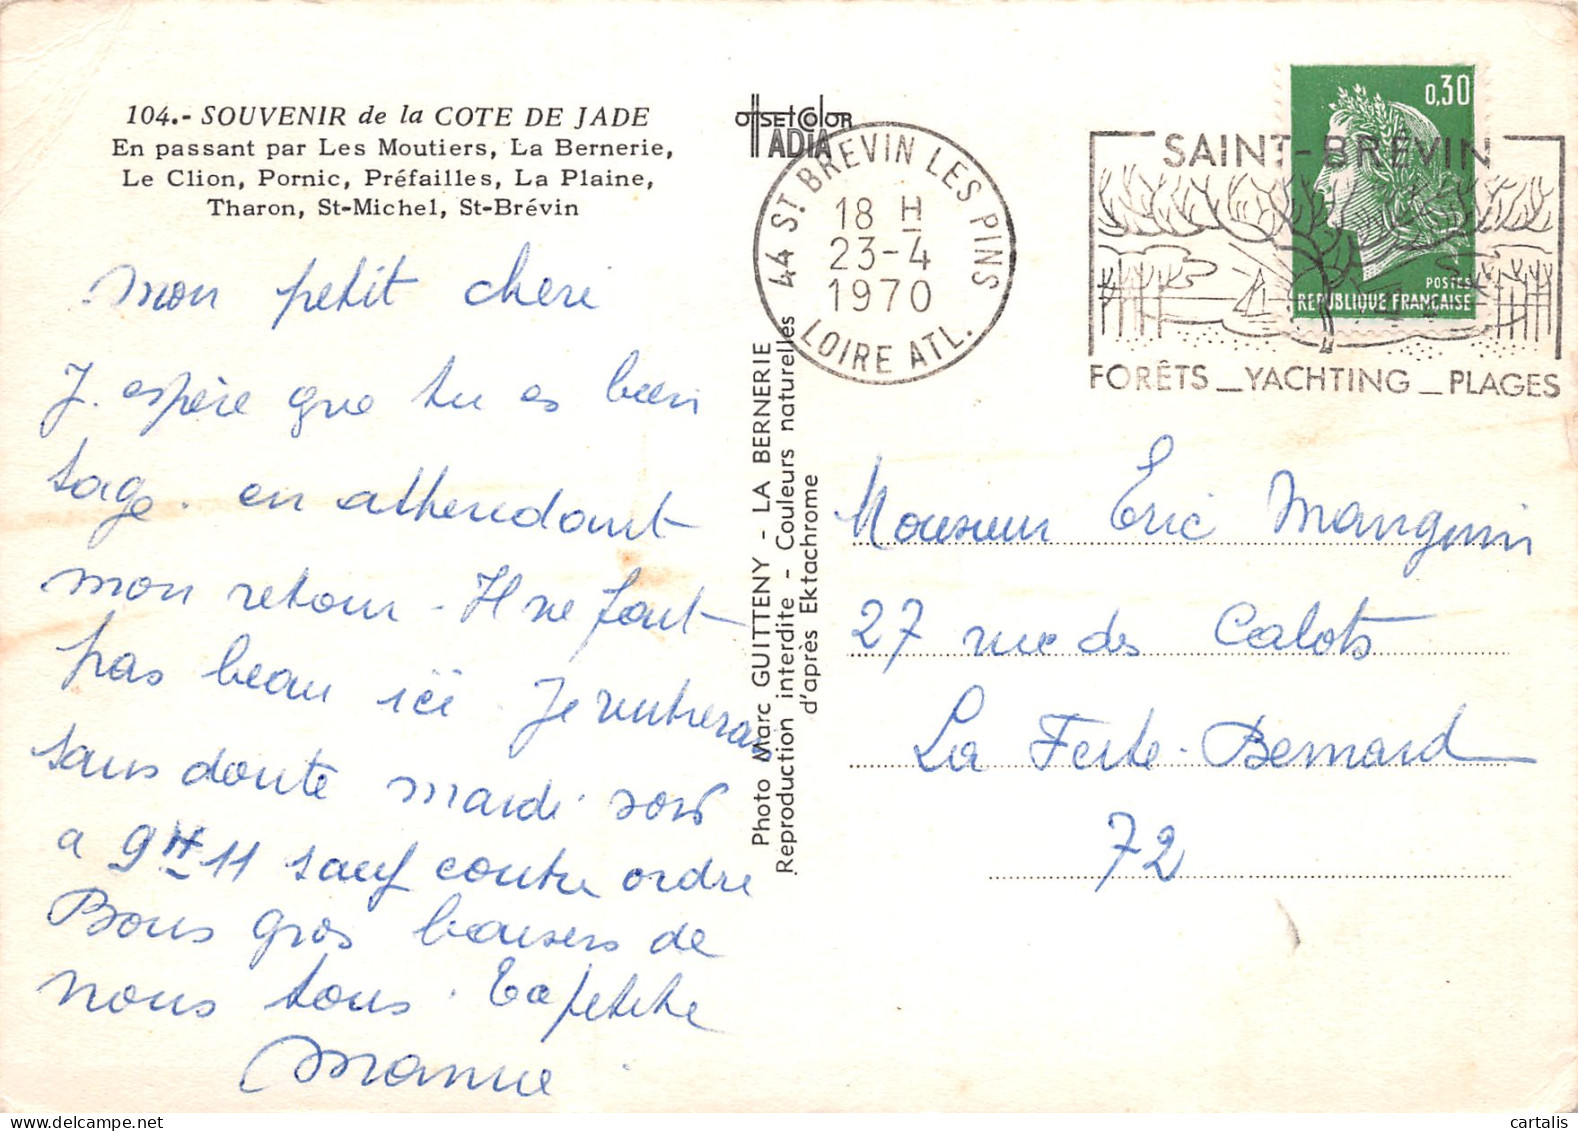 104.- SOUVENIR de la COTE DE JADE
En passant par Les Moutiers, La Bernerie,
Le Clion, Pornic, Préfailles, La Plaine,
Tharon, St-Michel, St-Brévin
mon petit cheri
J. espère que tu es bien
sage. en athendant
mon retour - Il ne fait
pas beau ici. Je rentrerai
sans doute mardi soir
a 9H 11 sauf contre ordre
Bons gros baisers de
nous tous. Ta petite
Mamie
OFFSET COLOR
ADIA
Photo Marc GUITTENY - LA BERNERIE
Reproduction interdite - Couleurs naturelles
d'après Ektachrome
44 ST. BREVIN LES PINS
18 H
23-4
1970
LOIRE ATL.
SAINT-BRÉVIN
FORÊTS _ YACHTING _ PLAGES
0,30
POSTES
REPUBLIQUE FRANÇAISE
Monsieur Eric Manguin
27 rue des Calots
La Ferte-Bernard
72
cartalis